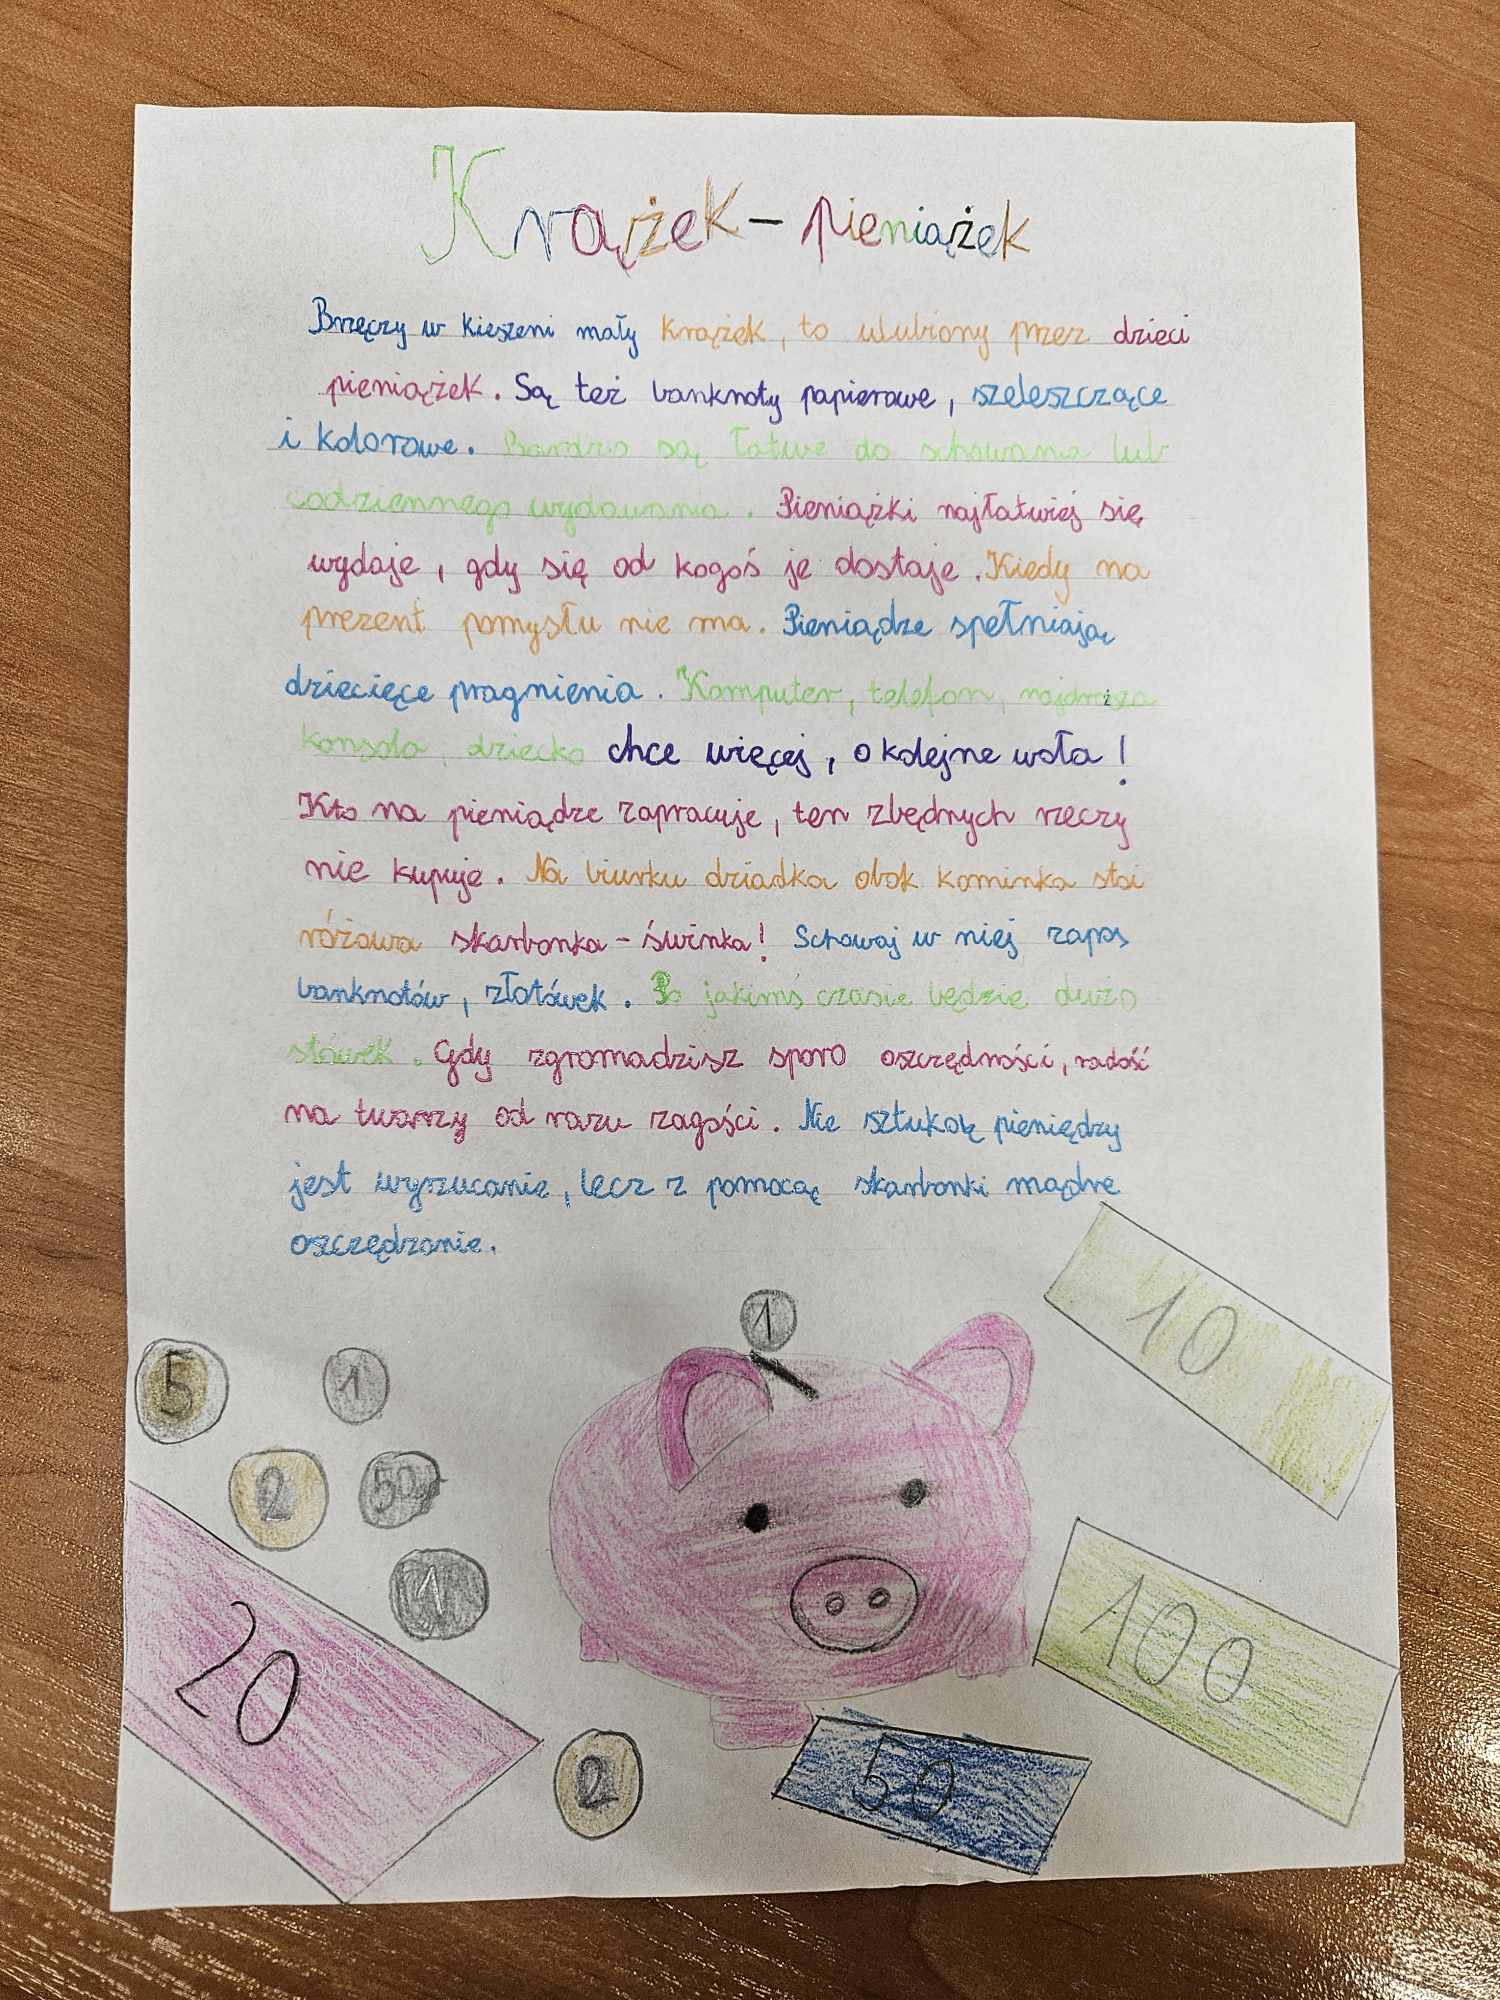 Krążek - pieniążek
Brzęczy w kieszeni mały krążek, to ulubiony przez dzieci
pieniążek. Są też banknoty papierowe, szeleszczące
i kolorowe. Bardzo są łatwe do schowania lub
codziennego wydawania. Pieniążki najłatwiej się
wydaje, gdy się od kogoś je dostaje. Kiedy na
prezent pomysłu nie ma. Pieniądze spełniają
dziecięce pragnienia. Komputer, telefon, najdroższa
konsola, dziecko chce więcej, o kolejne woła!
Kto na pieniądze zapracuje, ten zbędnych rzeczy
nie kupuje. Na biurku dziadka obok kominka stoi
różowa skarbonka - świnka! Schowaj w niej zapas
banknotów, złotówek. Po jakimś czasie będzie dużo
stówek. Gdy zgromadzisz sporo oszczędności, radość
na twarzy od razu zagości. Nie sztuką pieniędzy
jest wyrzucanie, lecz z pomocą skarbonki mądre
oszczędzanie.
1
10
5
1
2
50
1
20
100
2
50